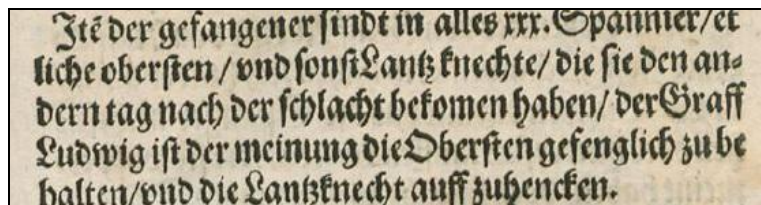 Jtẽ der gefangener sindt in alles xxx. Spannier/et
liche obersten / vnd sonst Lantz knechte/ die sie den an⸗
dern tag nach der schlacht bekomen haben/ der Graff
Ludwig ist der meinung die Obersten gefenglich zu be
halten/vnd die Lantzknecht auff zuhencken.